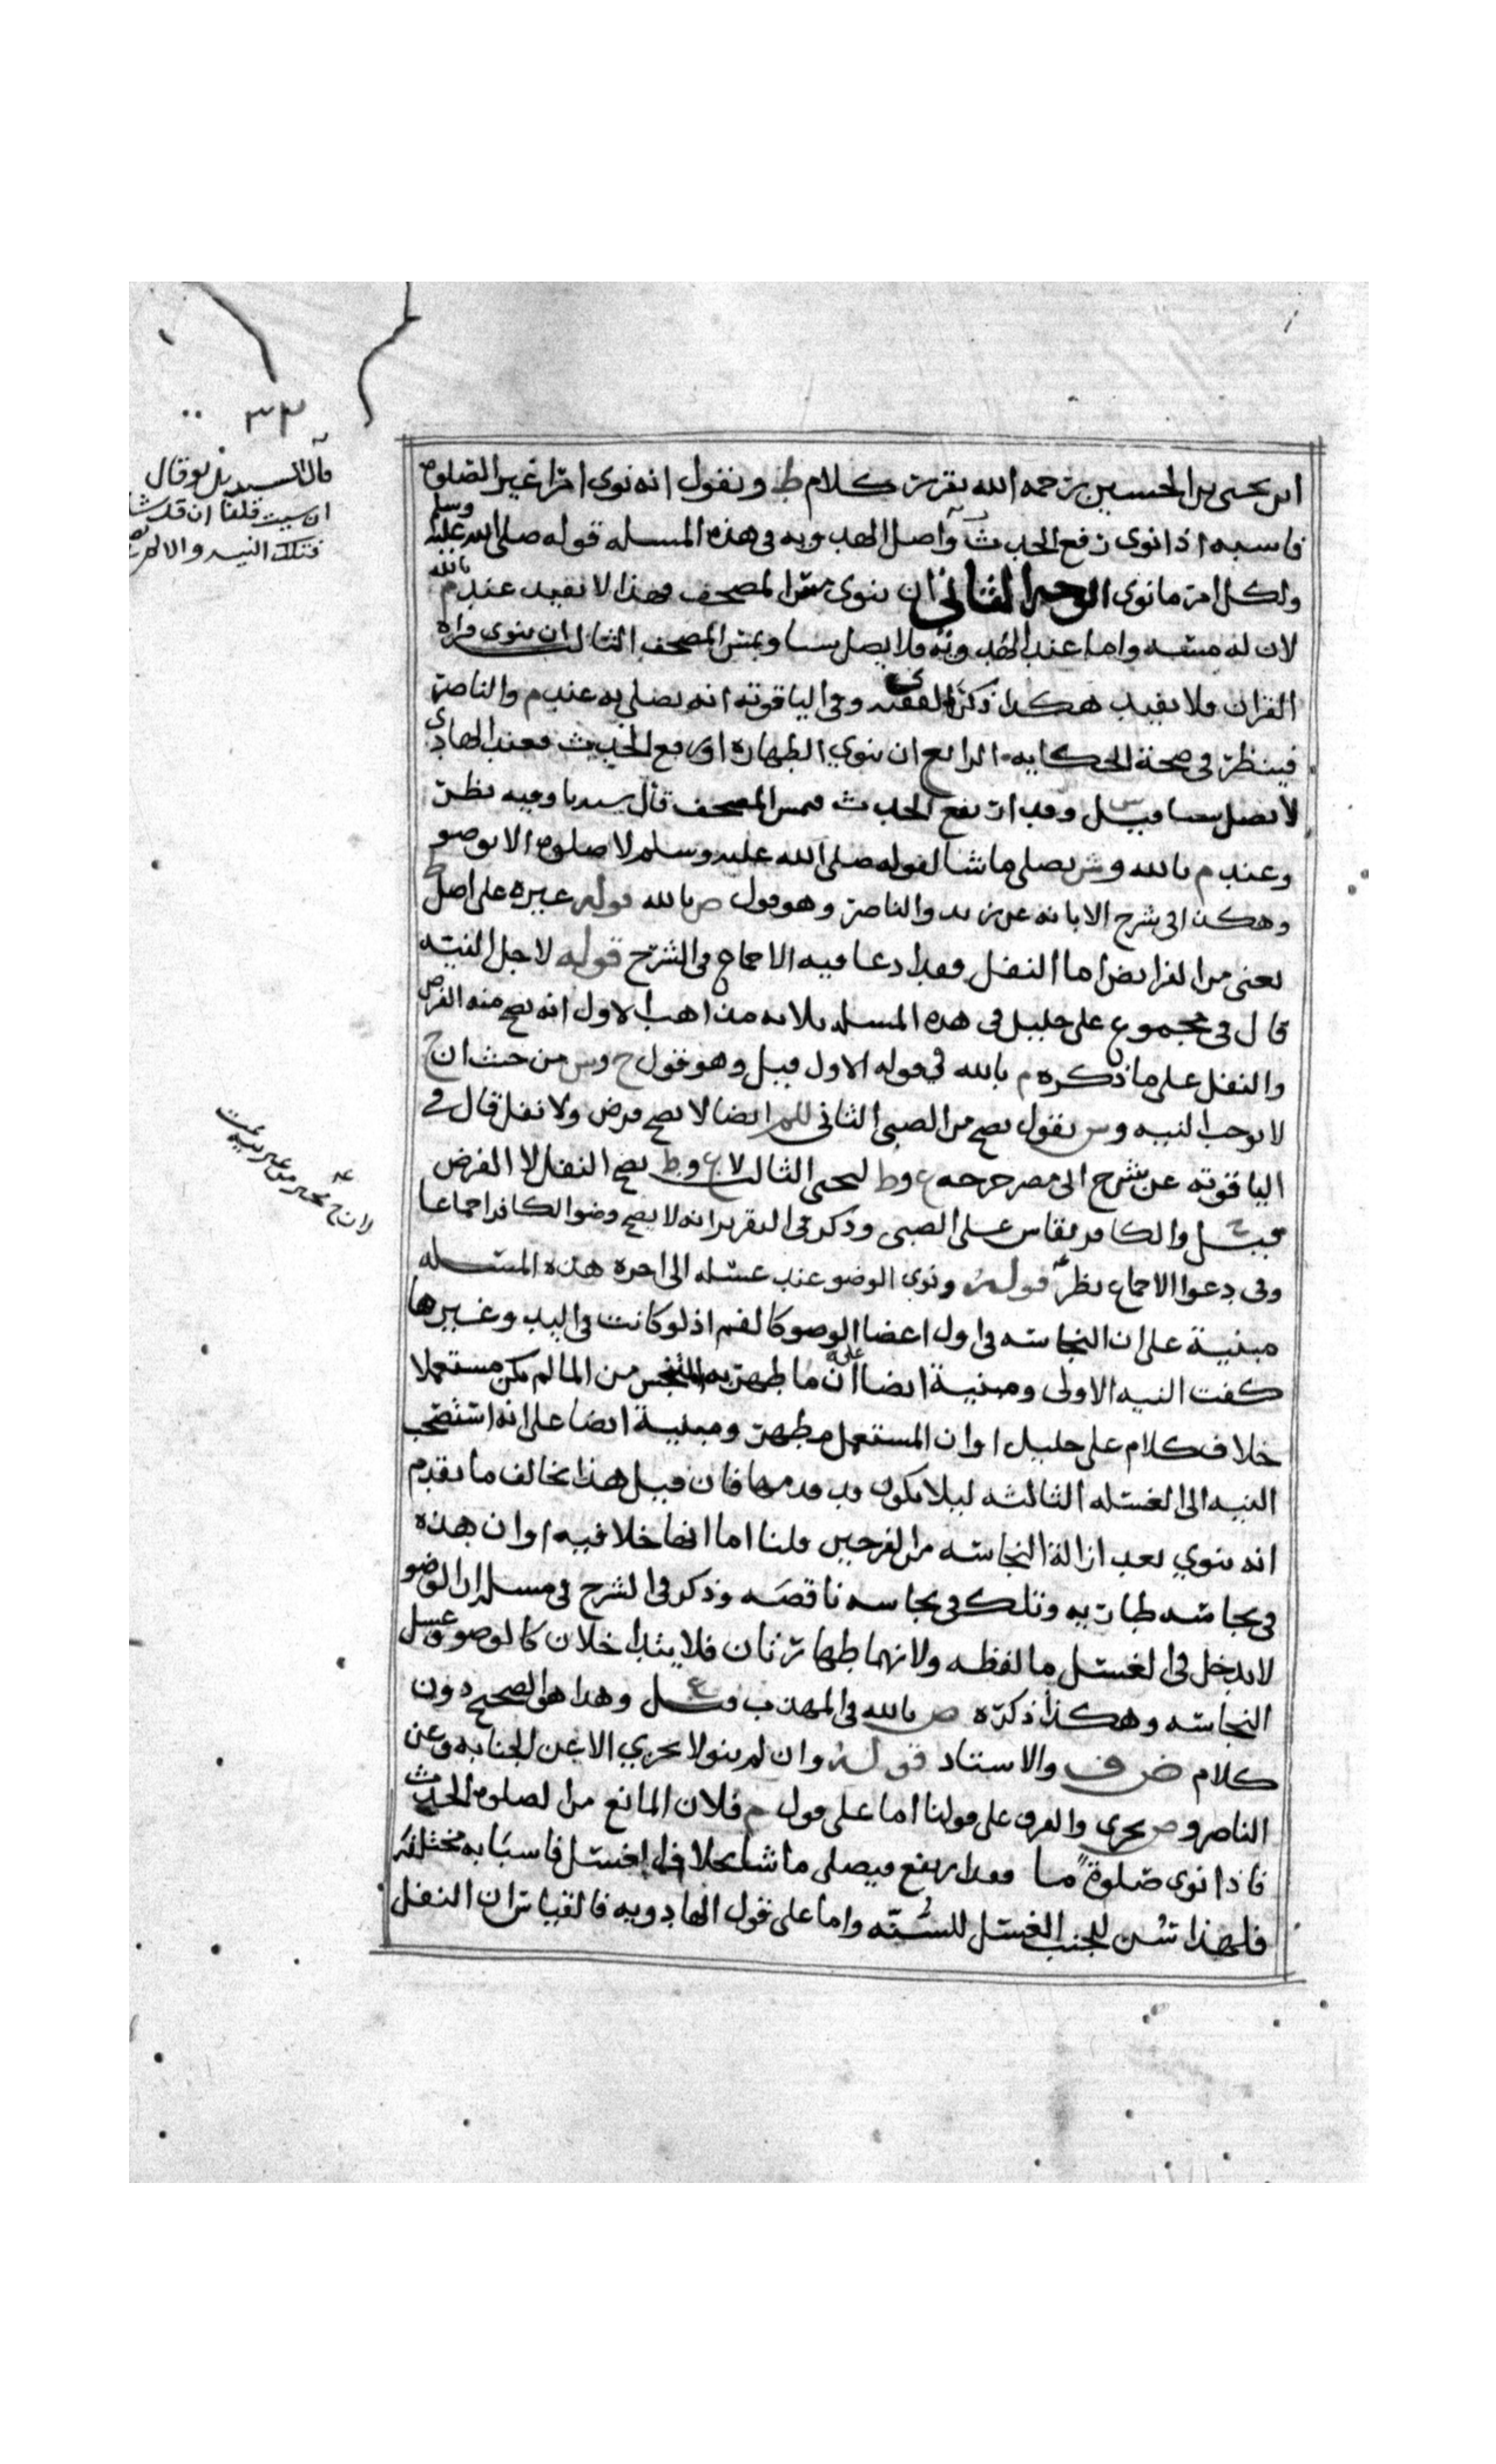 ابن يحيى بن الحسين رحمه الله يقرر كلام ط ونقول انه نوى امرا غير الصلوه
فاشبه اذا نوى رفع الحدث واصل الهدويه في هذه المسله قوله صلى الله عليه وسلم
ولكل امرء ما نوى الوجه الثاني ان ينوي مس المصحف فهذا لا يفيد عند م بالله
لان له مسه واما عند الهدويه فلا يصلي شيا ويمس المصحف الثالث ان ينوي قراه
القران فلا يفيد هكذا ذكره الفقيه ى وفي الياقوته انه يصلي به عند م والناصر
فينظر في صحة الحكايه الرابع ان ينوي الطهاره او رفع الحدث فعند الهادي
لا يصلي شيا قيل س وقد ارتفع الحدث فيمس المصحف قال سيدنا وفيه نظر
وعند م بالله وش يصلي ما شا لقوله صلى الله عليه وسلم لا صلوه الا بوضو
وهكذا في شرح الابانه عن زيد والناصر وهو قول ص بالله قوله غيره على اصل ط
يعني من الفرايض اما النفل فقد ادعا فيه الاجماع في الشرح قوله لاجل النيه
قال في مجموع علي خليل في هذه المسله ثلاثه مذاهب الاول انه يصح منه الفرض
والنفل على ما ذكره م بالله في قوله الاول قيل وهو قول ح وش من حيث ان ح
لا يوجب النيه وش يقول يصح من الصبي الثاني للم ايضا لا يصح فرض ولا نفل قال في
الياقوته عن شرح ابي مضر خرجه ع وط ليحيى الثالث لاع وط يصح النفل لا الفرض
قيل ح والكافر يقاس على الصبي وذكر في التقرير انه لا يصح وضوا الكافر اجماعا
وفي دعوا الاجماع نظر قوله ونوى الوضو عند غسله الى اخره هذه المسله
مبنية على ان النجاسه في اول اعضا الوضو كالفم اذ لو كانت في اليد وغيرها
كفت النيه الاولى ومبنية ايضا على ان ما طهر به المتنجس من الما لم يكن مستعملا
خلاف كلام علي خليل او ان المستعمل مطهر ومبنية ايضا على انه استصحب
النيه الى الغسله الثالثه ليلا يكون قد قدمها فان قيل هذا يخالف ما تقدم
انه ينوي بعد ازالة النجاسه من الفرجين قلنا اما انها خلافيه او ان هذه
في نجاسه طاريه وتلك في نجاسه ناقضه وذكر في الشرح في مسله ان الوضو
لا يدخل في الغسل ما لفظه ولانهما طهارتان فلا يتداخلان كالوضو وغسل
النجاسه وهكذا ذكره ص بالله في المهذب قيل ع وهذا هو الصحيح دون
كلام ض ف والاستاد قوله وان لم ينو لا يجزي الا عن الجنابه وعن
الناصر وص يجزي والفرق على قولنا اما على قول م فلان المانع من الصلوه الحدث
فاذا نوى صلوة ما فقد ارتفع فيصلي ما شا بخلاف الغسل فاسبابه مختلفه
فلهذا سن للجنب الغسل للسنه واما على قول الهادويه فالقياس ان النفل
٣٣
وقال
ان قلنا ان قد
فتلك النيه والا
لان ح